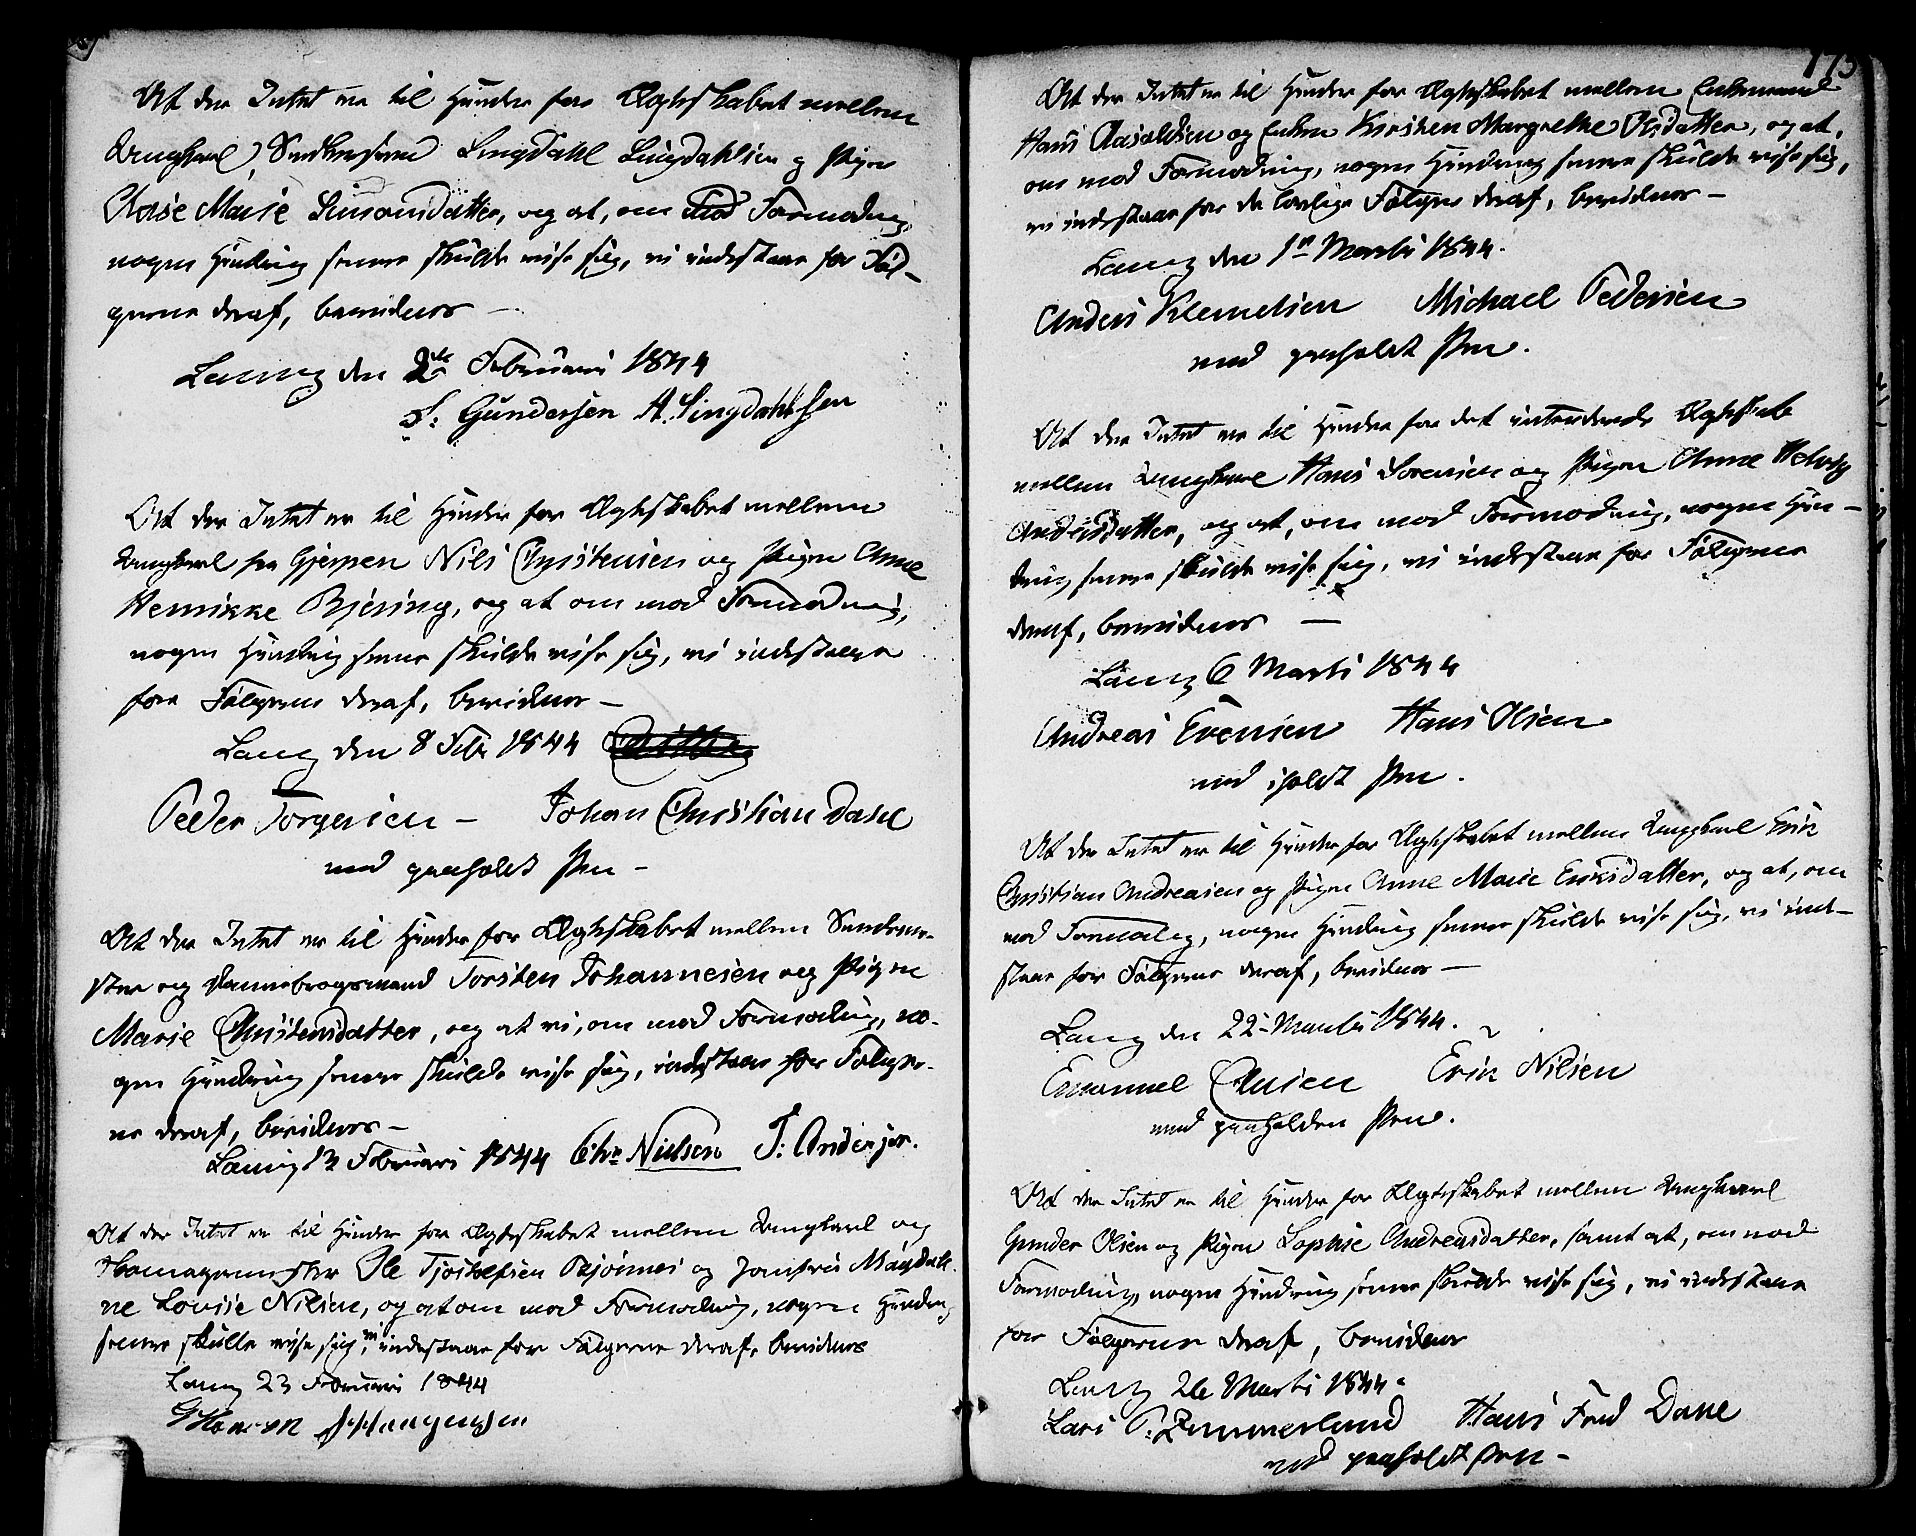 At der Intet er til Hinder for Ægteskabet mellem
Ungkarl, Snedkersvend Lingdahl Lingdahlsen og Pigen
Aase Marie Simonsdatter, og at, om mod Formodning,
nogen Hindring senere skulde vise sig, vi indestaae for Føl-
gerne deraf, bevidnes —
Laurvig den 2de Februari 1844
S. Gundersen A. Lingdahlsen
At der Intet er til Hinder for Ægteskabet mellem
Ungkarl fra Gjerpen Nils Christensen og Pigen Anne
Henrikke Bjering, og at om mod Formodning,
nogen Hindring senere skulde vise sig, vi indestaae
for Følgerne deraf, bevidnes —
Laurvig den 8 Febr 1844
Peder Torgersen — Johan Christian Dahl
med paaholdt Pen —
At der Intet er til Hinder for Ægteskabet mellem
og Dannebrogsmand Torsten Johannesen og Pigen
Marie Christensdatter, og at vi, om mod Formodning, no-
gen Hindring senere skulde vise sig, indestaae for Følger-
ne deraf, bevidnes —
Laurvig 13 Februari 1844 Chr. Nielsen J. Andersen.
At der Intet er til Hinder for Ægteskabet mellem Ungkarl og
Skomagermester Ole Tjostolfsen Bjønnes og Jomfru Magdale-
ne Lovise Nilsen, og at om mod Formodning, nogen Hindring
senere skulle vise sig, vi indestaae for Følgerne deraf, bevidnes
Laurvig 23 Februari 1844
175
At der Intet er til Hinder for Ægteskabet mellem Enkemand
Hans Aasoldsen og Enken Kirsten Margrethe Olsdatter, og at,
om mod Formodning, nogen Hindring senere skulde vise sig,
vi indestaae for de lovlige Følger deraf, bevidnes —
Laurvig den 1n Martii 1844.
Anders Klemetsen Michael Pedersen
med paaholdt Pen.
At der Intet er til Hinder for det intenderede Ægteskab
mellem Ungkarl Hans Sørensen og Pigen Anne Helvig
Andersdatter, og at, om mod Formodning, nogen Hin-
dring senere skulde vise sig, vi indestaae for Følgerne
deraf, bevidnes —
Laurvig 6 Martii 1844
Andreas Evensen Hans Olsen
med iholdt Pen.
At der Intet er til Hinder for Ægteskabet mellem Ungkarl Erik
Christian Andreasen og Pigen Anne Marie Eriksdatter, og at, om
mod Formodning, nogen Hindring senere skulde vise sig, vi inde-
staae for Følgerne deraf, bevidnes —
Laurvig den 22 Martii 1844.
Emanuel Clausen Erik Nilsen
med paaholden Pen.
At der Intet er til Hinder for Ægteskabet mellem Ungkarl
Gunder Olsen og Pigen Sophie Andreasdatter, samt at, om mod
Formodning, nogen Hindring senere skulde vise sig, vi indestaae
for Følgerne deraf, bevidnes
Laurvig 26 Martii 1844.
Lars P. Zimmerlund Hans Fred Dahl
med paaholdt Pen —